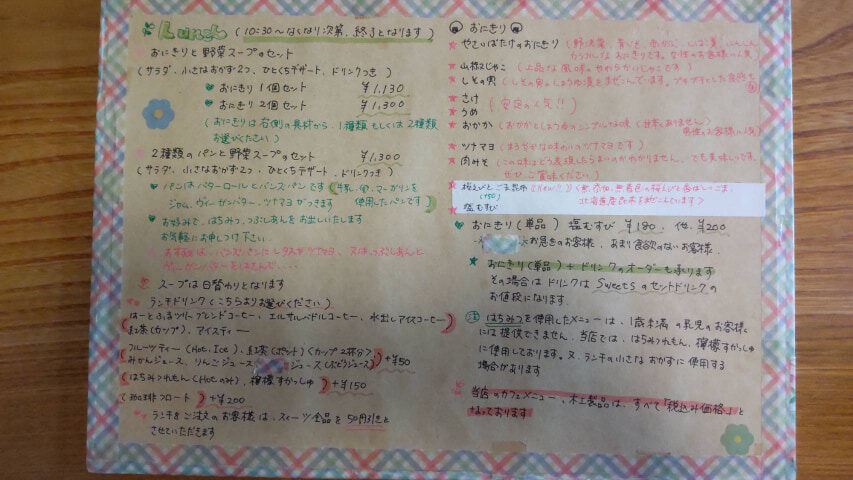 Lunch (10:30～なくなり次第、終了となります)
おにぎりと野菜スープのセット
(サラダ、小さなおかず2つ、ひとくちデザート、ドリンクつき)
おにぎり1個セット ¥1,130
おにぎり2個セット ¥1,300
(おにぎりは右側の具材から、1種類もしくは2種類
お選びください)
2種類のパンと野菜スープのセット ¥1,300
(サラダ、小さなおかず2つ、ひとくちデザート、ドリンクつき)
パンはバターロールとバンズパンです (牛乳、卵、マーガリンを
ジャム、ヴィーガンバター、ツナマヨがつきます 使用したパンです)
お好みで、はちみつ、つぶしあんをお出しいたします
お気軽にお申しつけ下さい
スープは日替わりとなります
ランチドリンク(こちらよりお選びください)
はーとふるツリーブレンドコーヒー、エルサルバドルコーヒー、水出しアイスコーヒー
紅茶(カップ)、アイスティー
フルーツティー(Hot、Ice)、紅茶(ポット)(カップ2杯分)
みかんジュース、りんごジュース ジュース(ぶどうジュース) +¥50
(はちみつれもん(Hotのみ)、檸檬すかっしゅ) +¥150
(珈琲フロート) +¥200
ランチをご注文のお客様は、スイーツ全品を50円引きと
させていただきます
おにぎり
やさいばたけのおにぎり
カラフルなおにぎりです。女性のお客様に人気)
山椒じゃこ (上品な風味。やわらかいじゃこです)
しその実 (しその実のしょうゆ漬をまぜこんでいます。プチプチとした食感も
さけ
うめ (安定の人気!!)
おかか (おかかとしょうゆのシンプルな味 (甘くありません)
男性のお客様に人気)
ツナマヨ (まろやかな味わいのツナマヨです)
肉みそ (この味はどう表現したらよいのかわかりません。でも美味しいです。
ぜひご賞味ください)
桜えびとごま昆布 (New!!) (無添加、無着色の桜えびと香ばしいごま、
(+50) 北海道産昆布をまぜこんでいます)
塩むすび
おにぎり(単品) 塩むすび ¥180、他、¥200
お急ぎのお客様、あまり食欲のないお客様、
おにぎり(単品)+ドリンクのオーダーも承ります
その場合はドリンクはSweetsのセットドリンクの
お値段になります
注 はちみつを使用したメニューは、1歳未満の乳児のお客様
には提供できません。当店では、はちみつれもん、檸檬すかっしゅ
に使用しております。又、ランチの小さなおかずに使用する
場合があります
当店のカフェメニュー、木工製品は、すべて「税込み価格」と
なっております